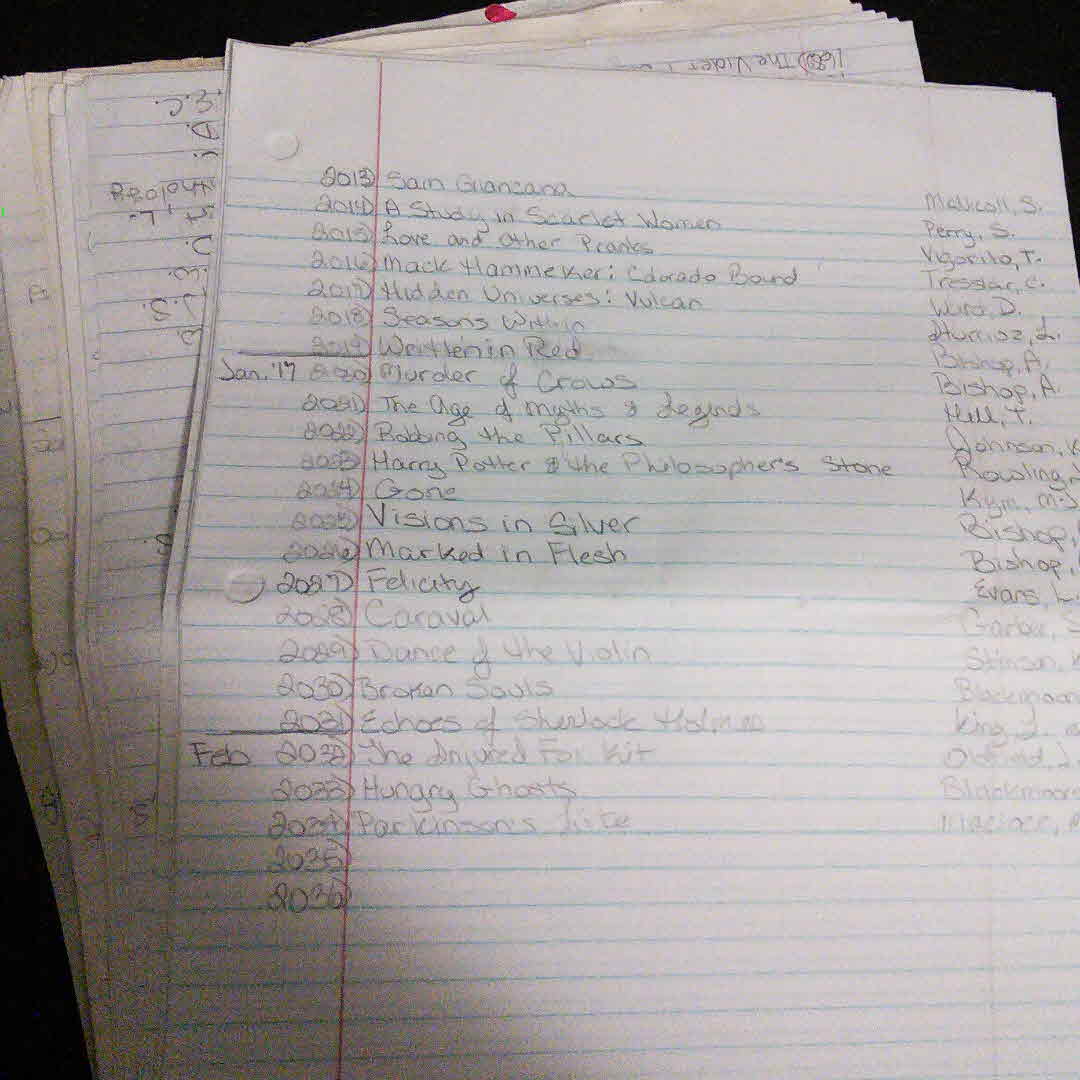 2013) Sam Giancana McNicoll, S.
2014) A Study in Scarlet Women Perry, S.
2015) Love and Other Pranks Vigorito, T.
2016) Mack Hammeker: Colorado Bound Tressler, C.
2017) Hidden Universes: Vulcan Ward, D.
2018) Seasons Within
2019) Written in Red Bishop, A.
Jan. '17 2020) Murder of Crows Bishop, A.
2021) The Age of Myths & Legends Hell, T.
2022) Robbing the Pillars Johnson, K
2023) Harry Potter & the Philosopher's Stone Rowling,
2024) Gone Kym, M.J
2025) Visions in Silver Bishop,
2026) Marked in Flesh Bishop,
2027) Felicity Evans, L.
2028) Caraval Garber, S
2029) Dance of the Violin Stinson, K
2030) Broken Souls Blackmoor
2031) Echoes of Sherlock Holmes King, L.
Feb 2032) The Injured Fox Kit
2033) Hungry Ghosts Blackmoore
2034) Parkinson's
2035)
2036)